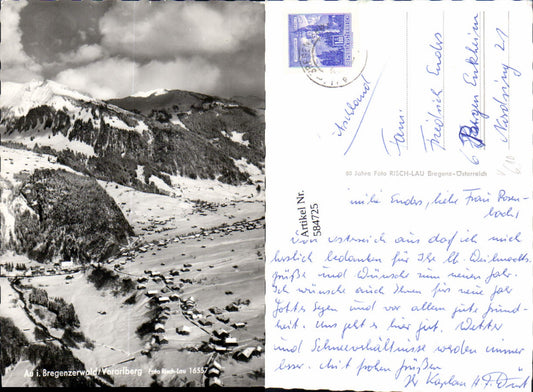 Au i. Bregenzerwald/Vorarlberg Foto Risch-Lau 16557
Fam.
Friedrich Endes
6 Bergen Enkheim
Nordring 21
80 Jahre Foto RISCH-LAU Bregenz-Österreich
Artikel Nr.
584725
Endes, liebe Frau Rosen-
bach!
Von Österreich aus darf ich mich
herzlich bedanken für Ihr lb. Weihnachts-
grüße und Wünsche zum neuen Jahr.
Ich wünsche auch Ihnen für's neue Jahr
Gottes Segen und vor allem gute Gesund-
heit. Uns geht es hier gut. Wetter
und Schneeverhältnisse werden immer
besser. Mit frohen Grüßen
Ihr Kaplan